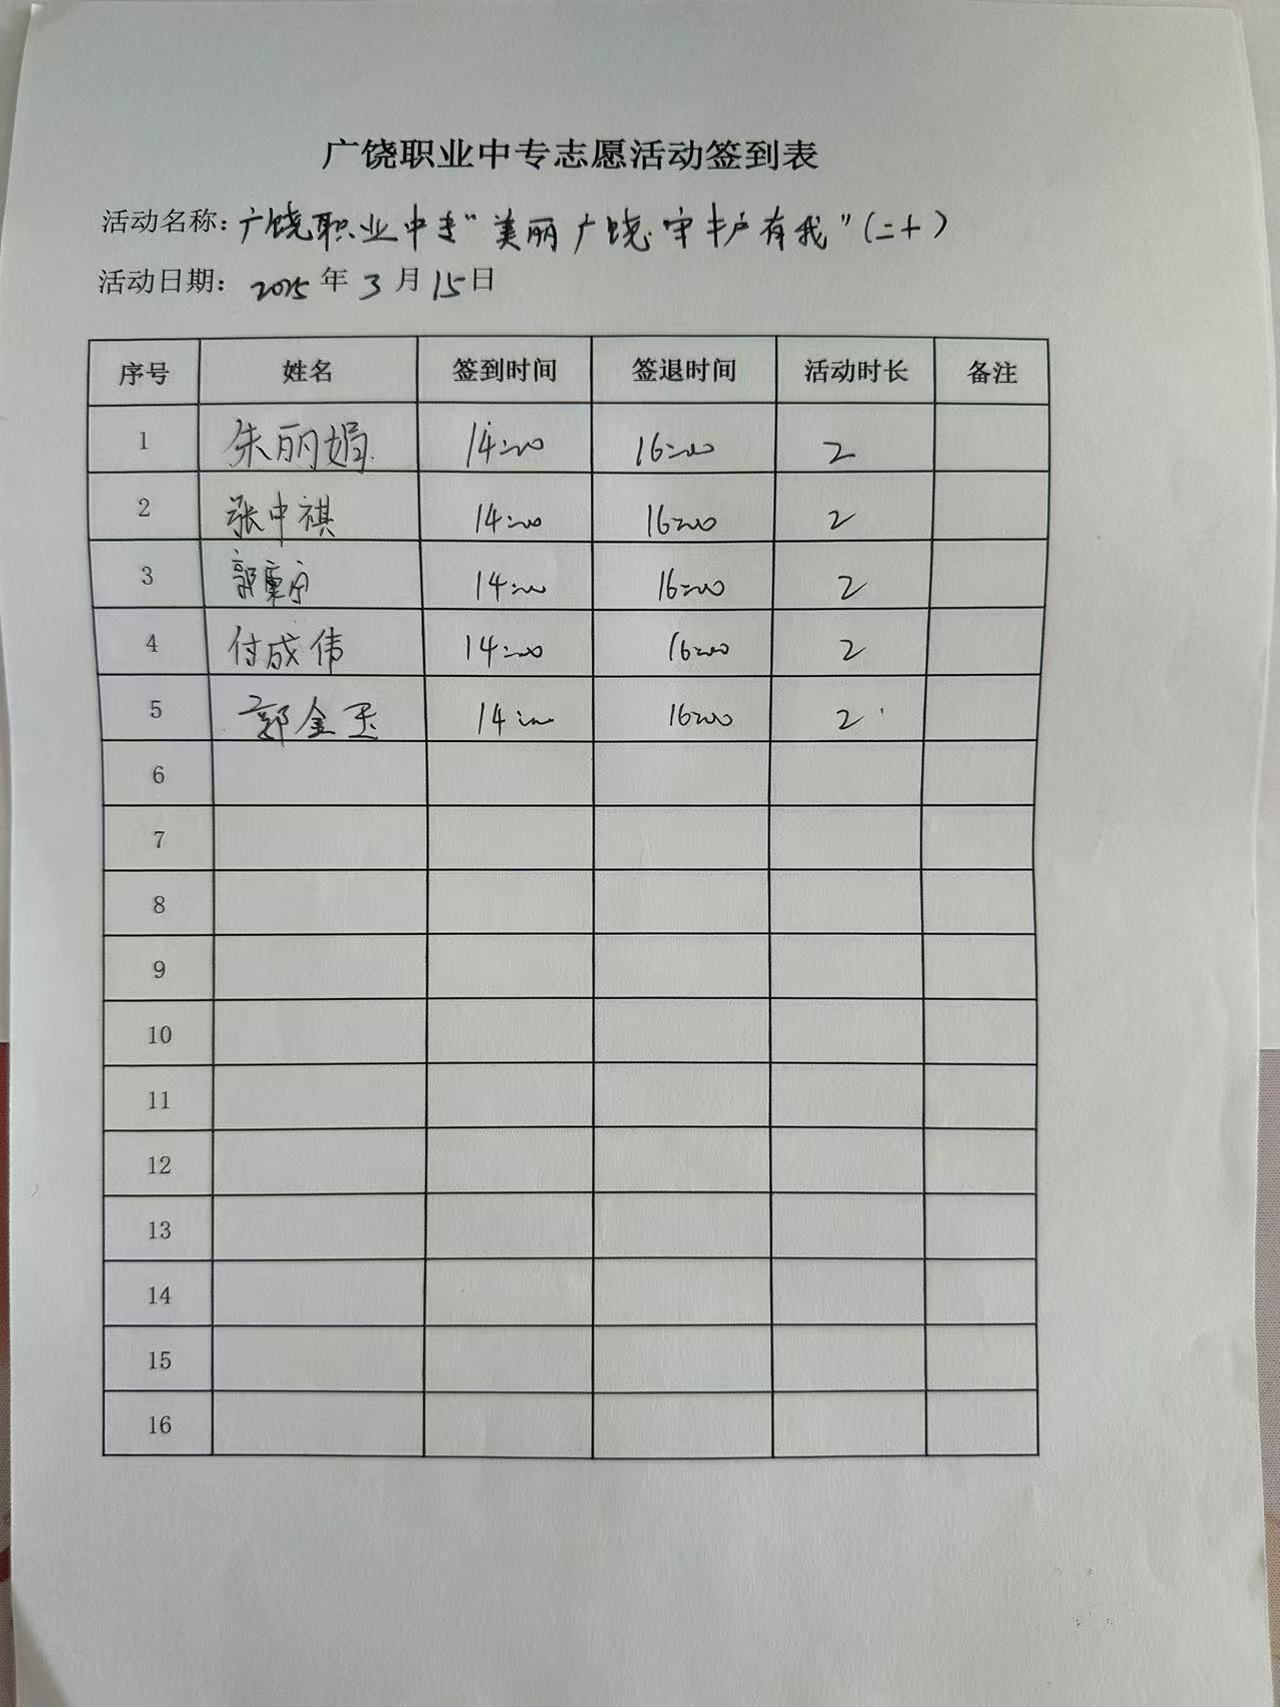 广饶职业中专志愿活动签到表
活动名称：广饶职业中专“美丽广饶·守护有我”（二十）
活动日期： 2025 年 3 月 15 日
序号 姓名 签到时间 签退时间 活动时长 备注
1 朱丽娟 14:00 16:00 2
2 张中祺 14:00 16:00 2
3 郭 14:00 16:00 2
4 付成伟 14:00 16:00 2
5 郭金玉 14:00 16:00 2
6
7
8
9
10
11
12
13
14
15
16